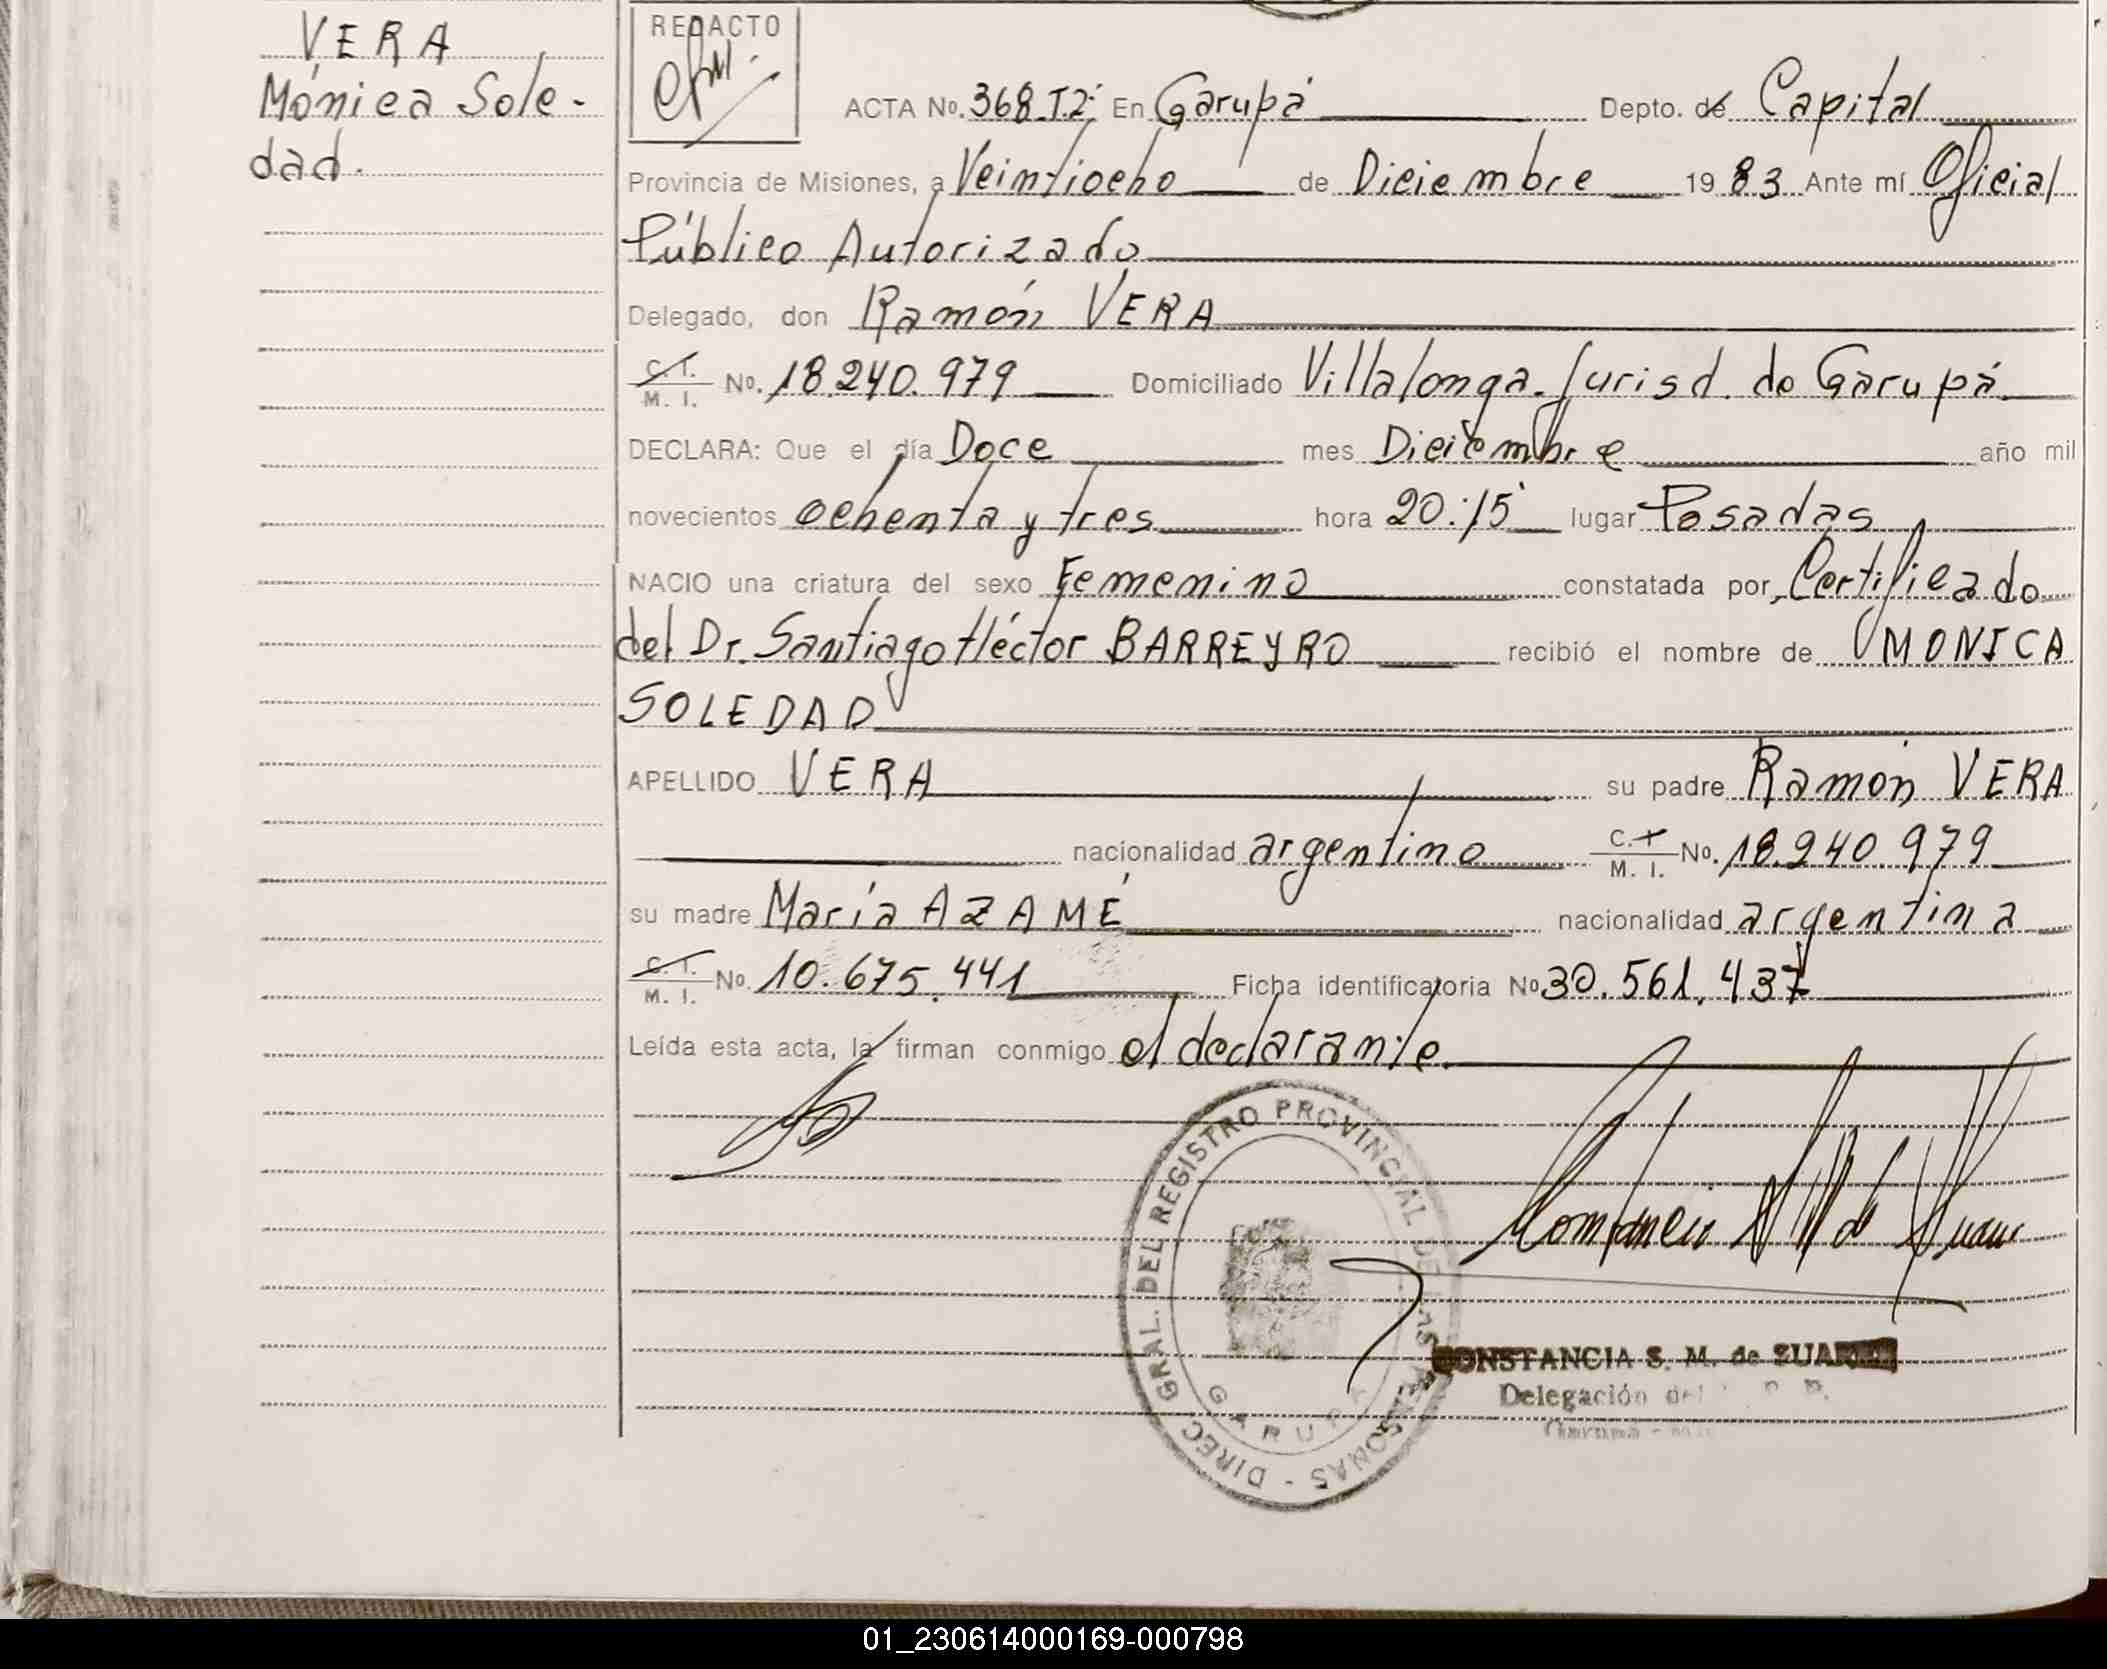 VERA
Mónica Sole-
dad.
REDACTO
ACTA No. 368.T.2º En Garupá Depto. de Capital
Provincia de Misiones, a Veintiocho de Diciembre 19 83 Ante mí Oficial
Público Autorizado
Delegado, don Ramón VERA
C. I.
M. I. No. 18.240.979 Domiciliado Villalonga. Jurisd. de Garupá.
DECLARA: Que el día Doce mes Diciembre año mil
novecientos ochenta y tres hora 20:15 lugar Posadas
NACIO una criatura del sexo Femenino constatada por Certificado
del Dr. Santiago Héctor BARREYRO recibió el nombre de MONICA
SOLEDAD
APELLIDO VERA su padre Ramón VERA
nacionalidad argentino C. I. M. I. No. 18.240.979
su madre María AZAMÉ nacionalidad argentina
C. I.
M. I. No. 10.675.441 Ficha identificatoria No 30.561.437
Leída esta acta, la firman conmigo el declarante.
DIREC. GRAL. DEL REGISTRO PROVINCIAL DE LAS PERSONAS -
GARUPA
CONSTANCIA S. M. de
Delegación del
01_230614000169-000798